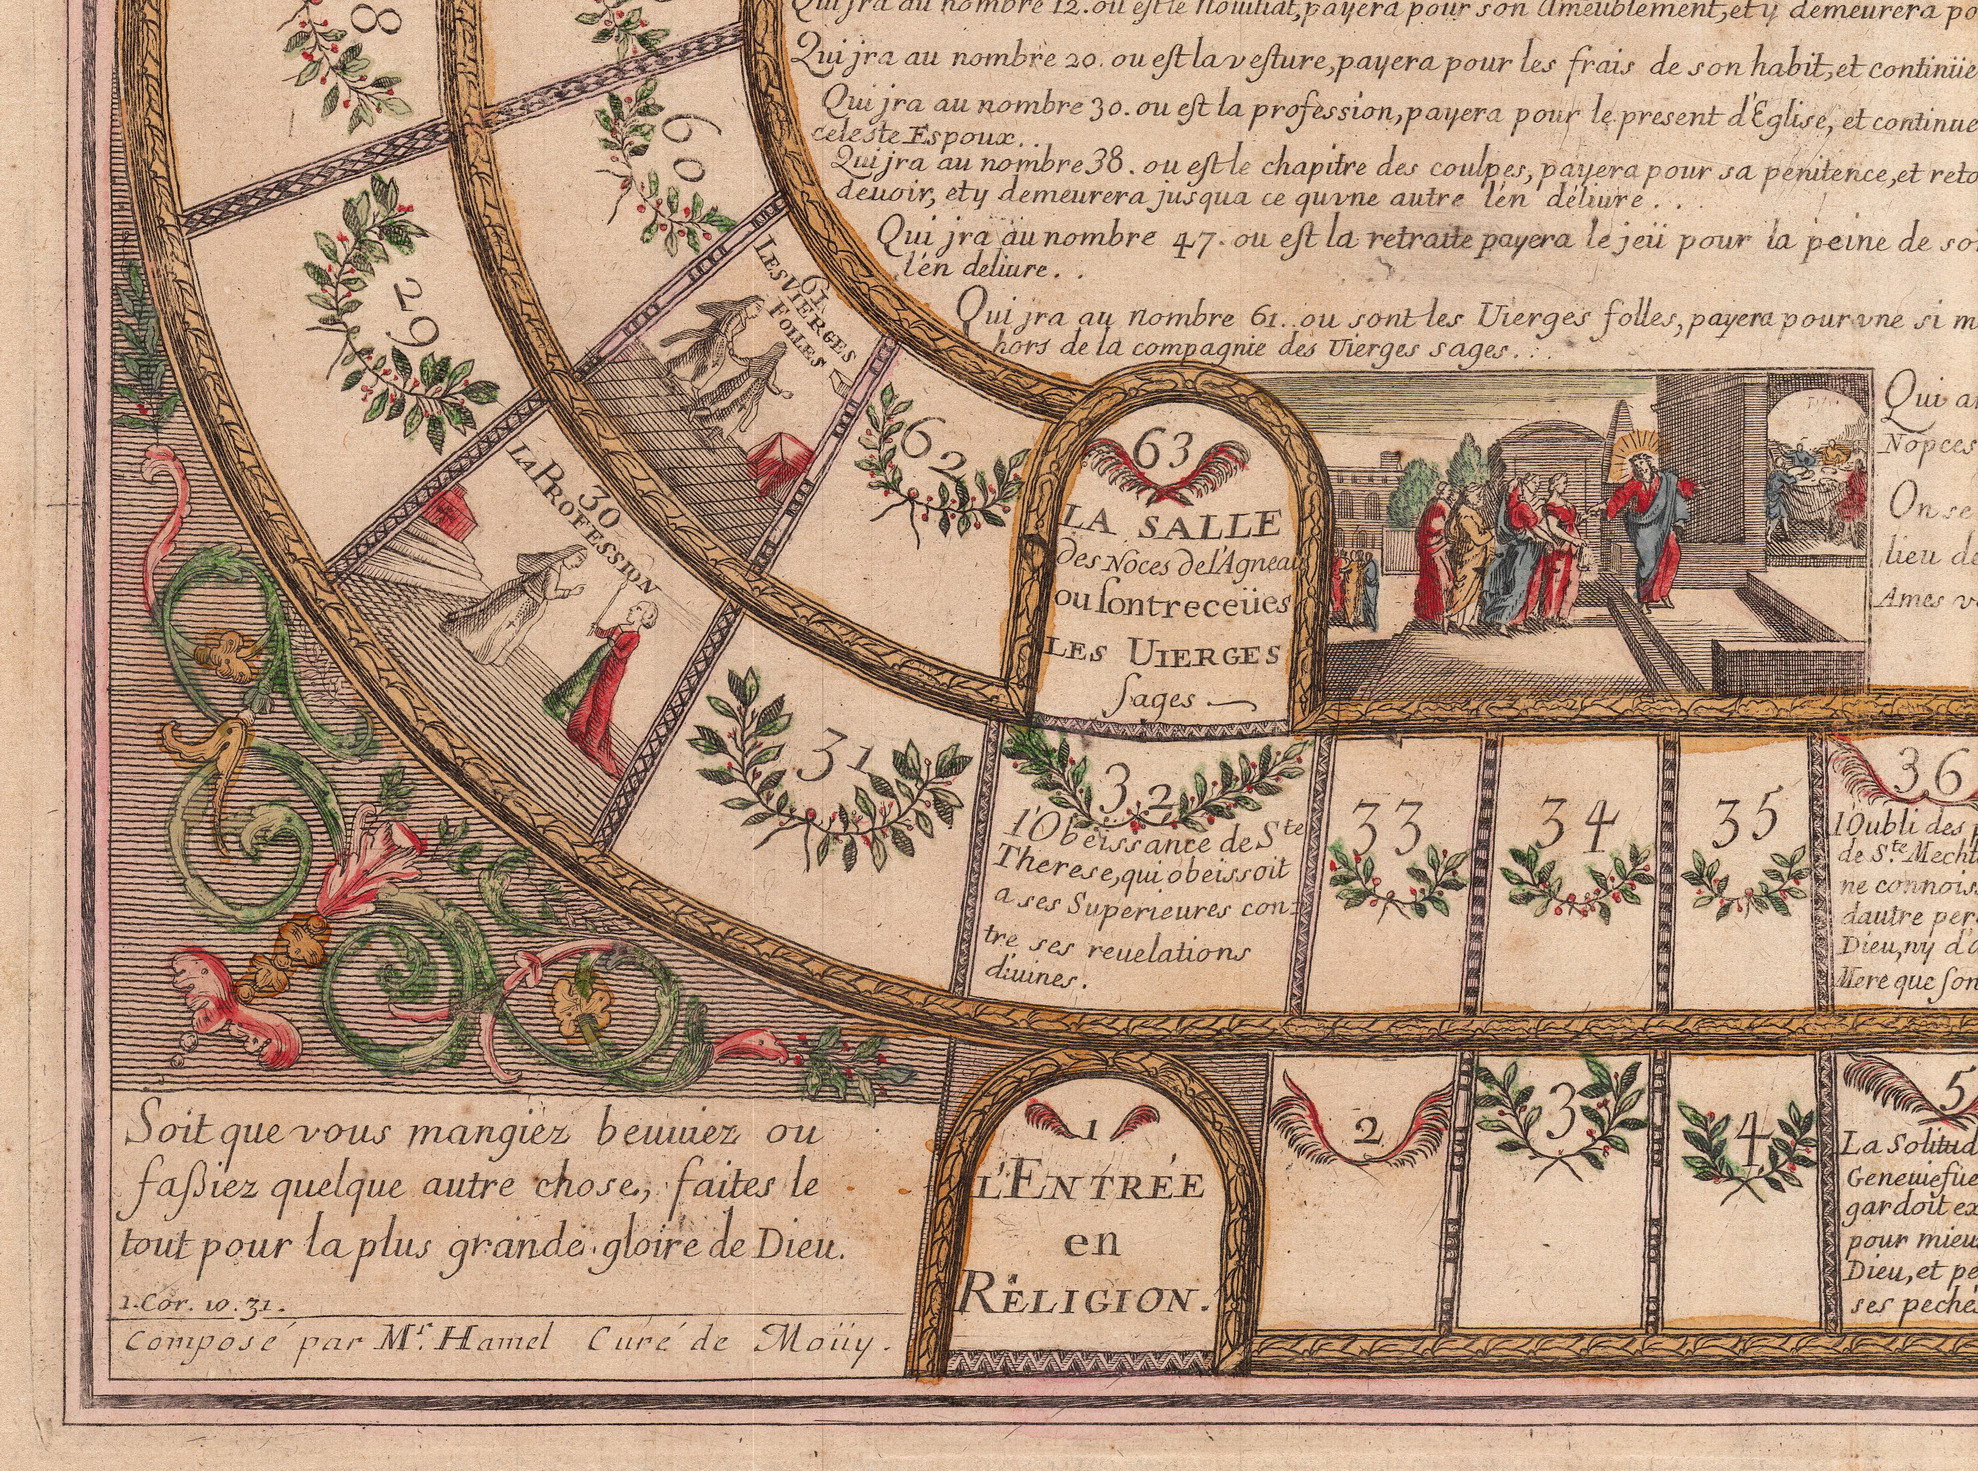 Qui jra au nombre 12. ou est le Nouitiat, payera pour son Ameublement, et y demeurera
Qui jra au nombre 20. ou est la vesture, payera pour les frais de son habit, et continüe
Qui jra au nombre 30. ou est la profession, payera pour le present d'Eglise, et continue
celeste Espoux. .
Qui jra au nombre 38. ou est le chapitre des coulpes, payera pour sa penitence, et
deuoir, et y demeurera jusqua ce quvne autre l'en déliure . .
Qui jra au nombre 47. ou est la retraite payera le jeü pour la peine de
l'en deliure. .
Qui jra au nombre 61. ou sont les Uierges folles, payera pour vne si
hors de la compagnie des Uierges sages. . .
Qui
Nopces
On se
lieu de
Ames
8
29
60
61
LES VIERGES
FOLLES
62
63
LA SALLE
des Noces de l'Agneau
ou sont receües
LES UIERGES
sages
30
LA PROFESSION
31
32
l'Obeissance de Ste
Therese, qui obeissoit
a ses Superieures con=
tre ses reuelations
diuines.
33
34
35
36
l'Oubli des
de Ste Mecht
ne connois
dautre per
Dieu, ny
Mere que
1
l'ENTRÉE
en
RELIGION.
2
3
4
5
La Solitud
Geneuiefue
gardoit ex
pour mieu
Dieu, et pe
ses peché
Soit que vous mangiez beuuiez ou
faßiez quelque autre chose, faites le
tout pour la plus grande gloire de Dieu.
1. Cor. 10. 31.
Composé par Mr. Hamel Curé de Moüy.